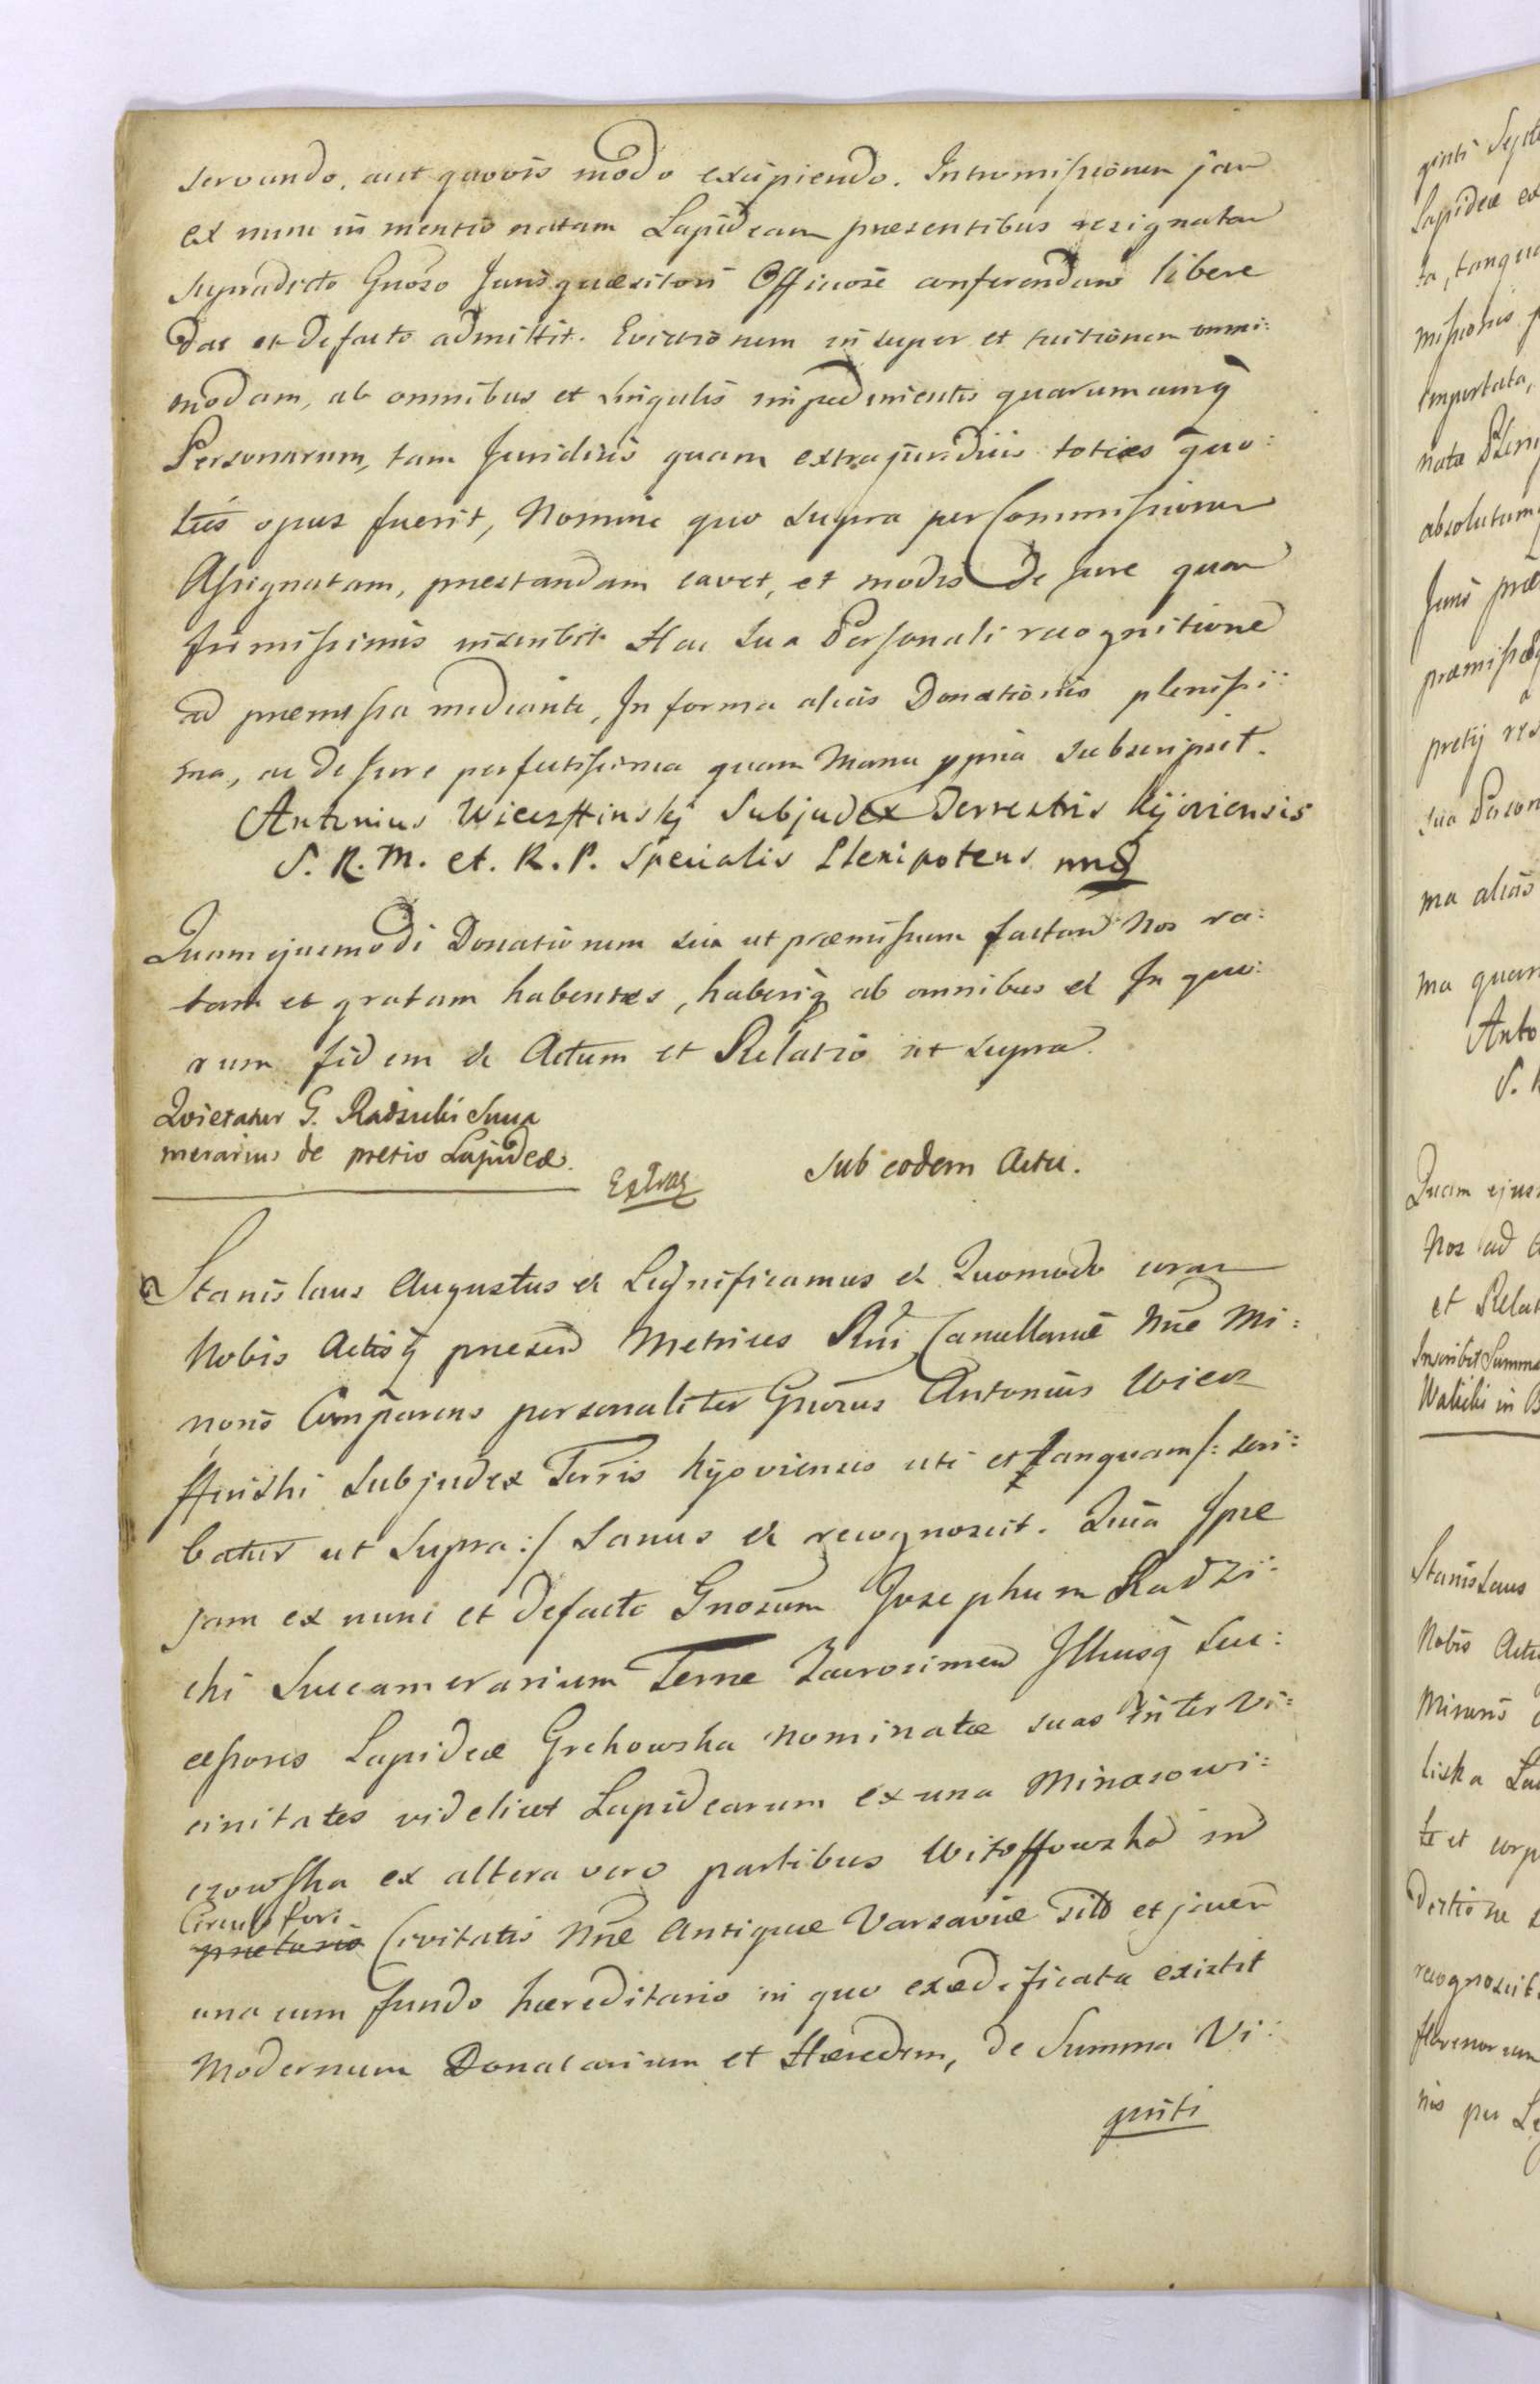 servando, aut quovis modo excipiendo. Intromissionem jam
ex nunc in mentionatam Lapideam praesentibus resignatam
supradicto Gnoso Jurisquaesitori Officiose conferendam libere
dat et defacto admittit. Evictionem insuper et tuitionem omni:
modam, ab omnibus et singulis impedimentis quarumcunq
Personarum, tam Juridicis quam extrajuridicis toties quo:
ties opus fuerit, Nomine quo supra per Commissionem
Assignatam, praestandam cavet, et modis de jure quam
firmissimis inscribit Hac sua Personali recognitione
ad praemissa mediante, In forma alias Donationis plenissi:
ma, ac de jure perfectissima quam Manu ppria subscripsit.
Antonius Wieczffinskj Subjudex Terrestris Kijoviensis
S. R. M. et. R. P. Specialis Plenipotens mp
Quam ejusmodi Donationem sic ut praemissum factam Nos ra:
tam et gratam habentes, haberiq ab omnibus &c In quo:
rum fidem &c Actum et Relatio ut supra.
Quietatur G. Radzicki Succa
merarius de pretio Lapideae.
Extrad
Sub eodem Actu.
Stanislaus Augustus &c Significamus &c Quomodo coram
Nobis Actisq praesen Metrices Rni Cancellariae Nrae Mi:
noris Comparens personaliter Gnosus Antonius Wiecz
ffinski Subjudex Terris Kijoviensis uti et tanquam /: scri:
batur ut supra :/ Sanus &c recognoscit. Quia Ipse
jam ex nunc et defacto Gnosum Josephum Radzi:
cki Succamerarium Terrae Zacrocimen Illiusq Suc:
cessores Lapideae Grekowska nominatae suas inter Vi:
cinitates videlicet Lapidearum ex una Minasowi:
czowska ex altera vero partibus Witoffowska in
Circulo fori
praetorio Civitatis Nrae Antiquae Varsaviae sito et jacen
una cum fundo haereditario in quo exaedificata existit
Modernum Donatarium et Haeredem, de Summa Vi:
ginti